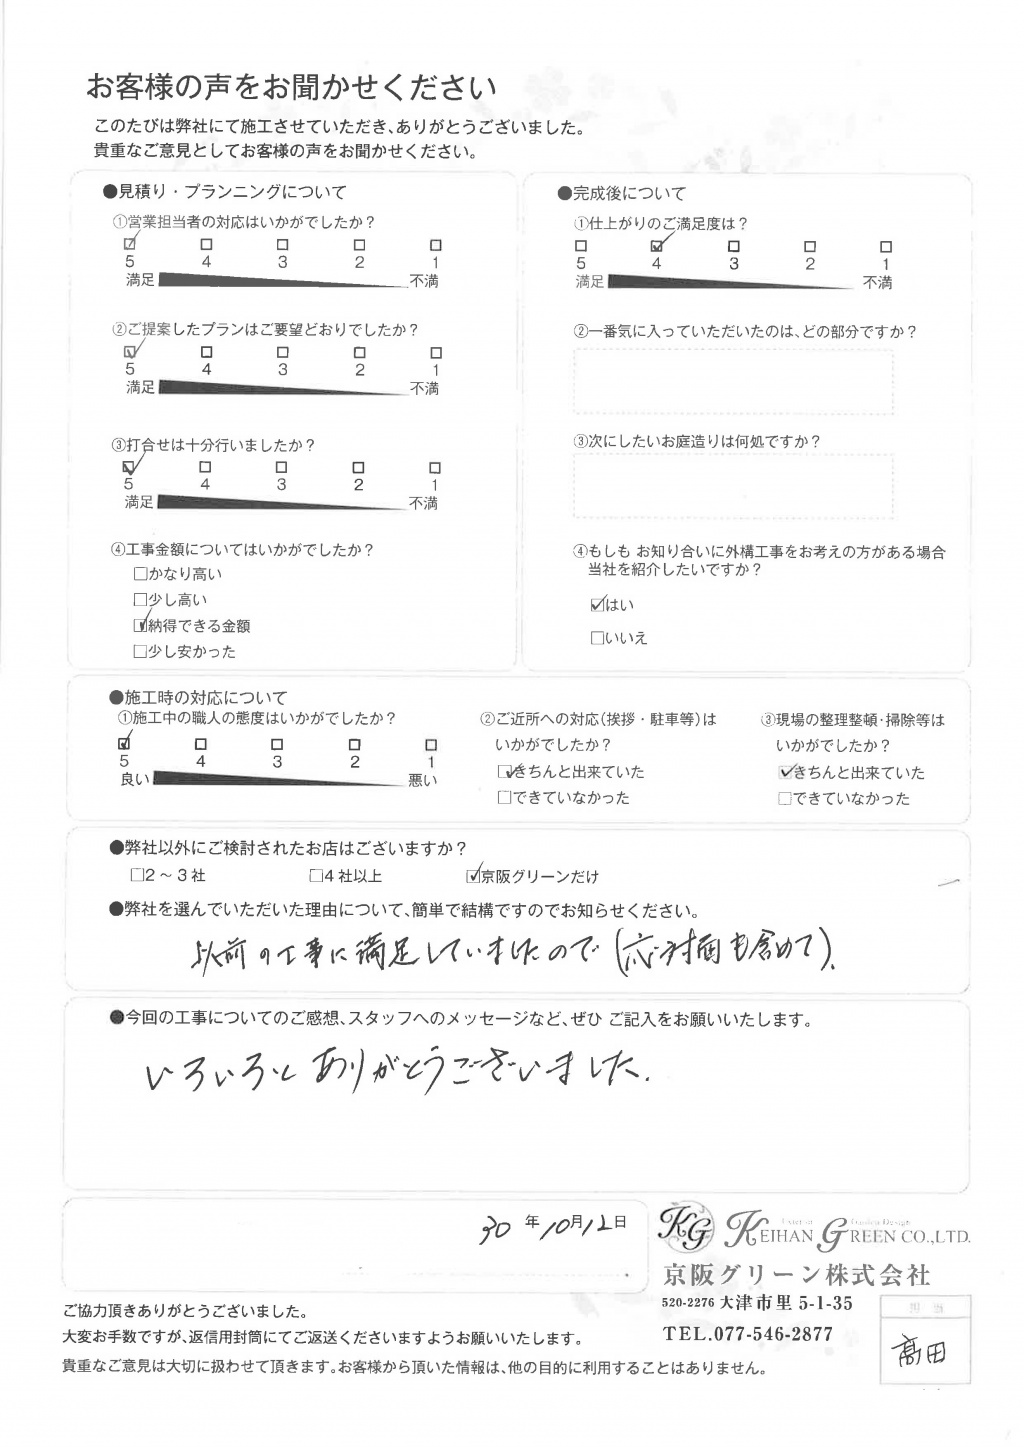 お客様の声をお聞かせください
このたびは弊社にて施工させていただき、ありがとうございました。
貴重なご意見としてお客様の声をお聞かせください。
●見積り・プランニングについて
①営業担当者の対応はいかがでしたか？
☑ □ □ □ □
5 4 3 2 1
満足 不満
②ご提案したプランはご要望どおりでしたか？
☑ □ □ □ □
5 4 3 2 1
満足 不満
③打合せは十分行いましたか？
☑ □ □ □ □
5 4 3 2 1
満足 不満
④工事金額についてはいかがでしたか？
□かなり高い
□少し高い
☑納得できる金額
□少し安かった
●完成後について
①仕上がりのご満足度は？
□ ☑ □ □ □
5 4 3 2 1
満足 不満
②一番気に入っていただいたのは、どの部分ですか？
③次にしたいお庭造りは何処ですか？
④もしも お知り合いに外構工事をお考えの方がある場合
当社を紹介したいですか？
☑はい
□いいえ
●施工時の対応について
①施工中の職人の態度はいかがでしたか？
☑ □ □ □ □
5 4 3 2 1
良い 悪い
②ご近所への対応(挨拶・駐車等)は
いかがでしたか？
☑きちんと出来ていた
□できていなかった
③現場の整理整頓・掃除等は
いかがでしたか？
☑きちんと出来ていた
□できていなかった
●弊社以外にご検討されたお店はございますか？
□2～3社 □4社以上 ☑京阪グリーンだけ
●弊社を選んでいただいた理由について、簡単で結構ですのでお知らせください。
以前の工事に満足していましたので(応対面も含めて).
●今回の工事についてのご感想、スタッフへのメッセージなど、ぜひ ご記入をお願いいたします。
いろいろとありがとうございました.
30年10月12日
KG Exterior Garden Design
KEIHAN GREEN CO.,LTD.
京阪グリーン株式会社
520-2276 大津市里 5-1-35
TEL.077-546-2877
担当
髙田
ご協力頂きありがとうございました。
大変お手数ですが、返信用封筒にてご返送くださいますようお願いいたします。
貴重なご意見は大切に扱わせて頂きます。お客様から頂いた情報は、他の目的に利用することはありません。